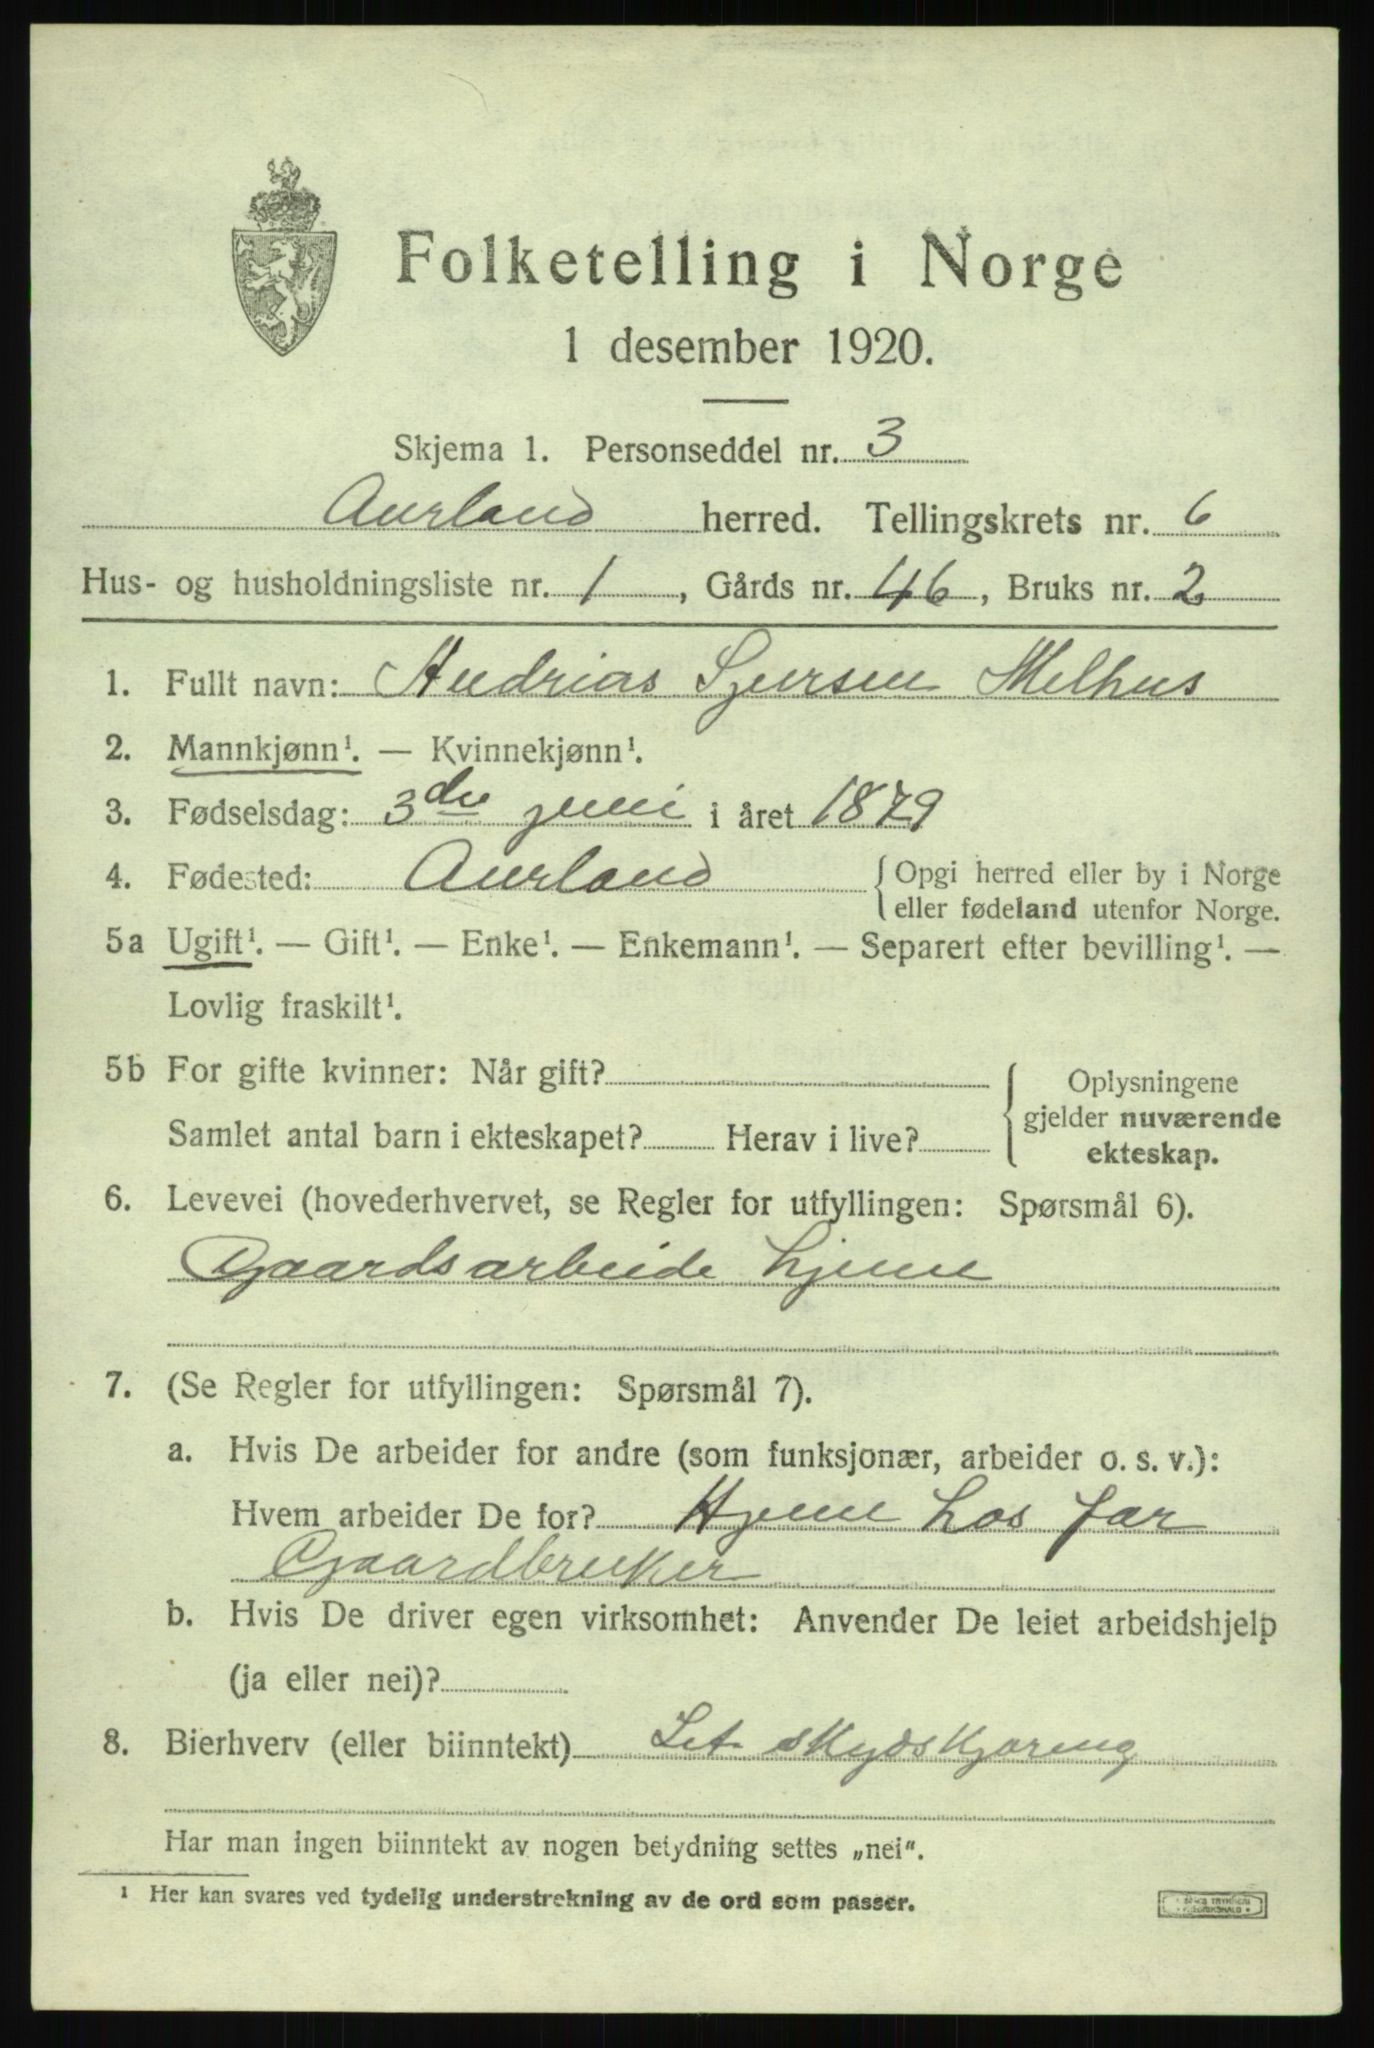 Folketelling i Norge
1 desember 1920.
Skjema 1. Personseddel nr. 3
Aurland herred. Tellingskrets nr. 6
Hus- og husholdningsliste nr. 1, Gårds nr. 46, Bruks nr. 2
1. Fullt navn: Andrias Sjursen Melhus
2. Mannkjønn¹. — Kvinnekjønn¹.
3. Fødselsdag: 3die juni i året 1879
4. Fødested: Aurland {Opgi herred eller by i Norge
eller fødeland utenfor Norge.
5a Ugift¹. — Gift¹. — Enke¹. — Enkemann¹. — Separert efter bevilling¹. —
Lovlig fraskilt¹.
5b For gifte kvinner: Når gift? {Oplysningene
gjelder nuværende
Samlet antal barn i ekteskapet? Herav i live?
ekteskap.
6. Levevei (hovederhvervet, se Regler for utfyllingen: Spørsmål 6).
Gaardsarbeide hjeme
7. (Se Regler for utfyllingen: Spørsmål 7).
a. Hvis De arbeider for andre (som funksjonær, arbeider o. s. v.):
Hvem arbeider De for? Hjeme hos far
Gaardbruker
b. Hvis De driver egen virksomhet: Anvender De leiet arbeidshjelp
(ja eller nei)?
8. Bierhverv (eller biinntekt) Let skydskjøring
Har man ingen biinntekt av nogen betydning settes „nei“.
¹ Her kan svares ved tydelig understrekning av de ord som passer.